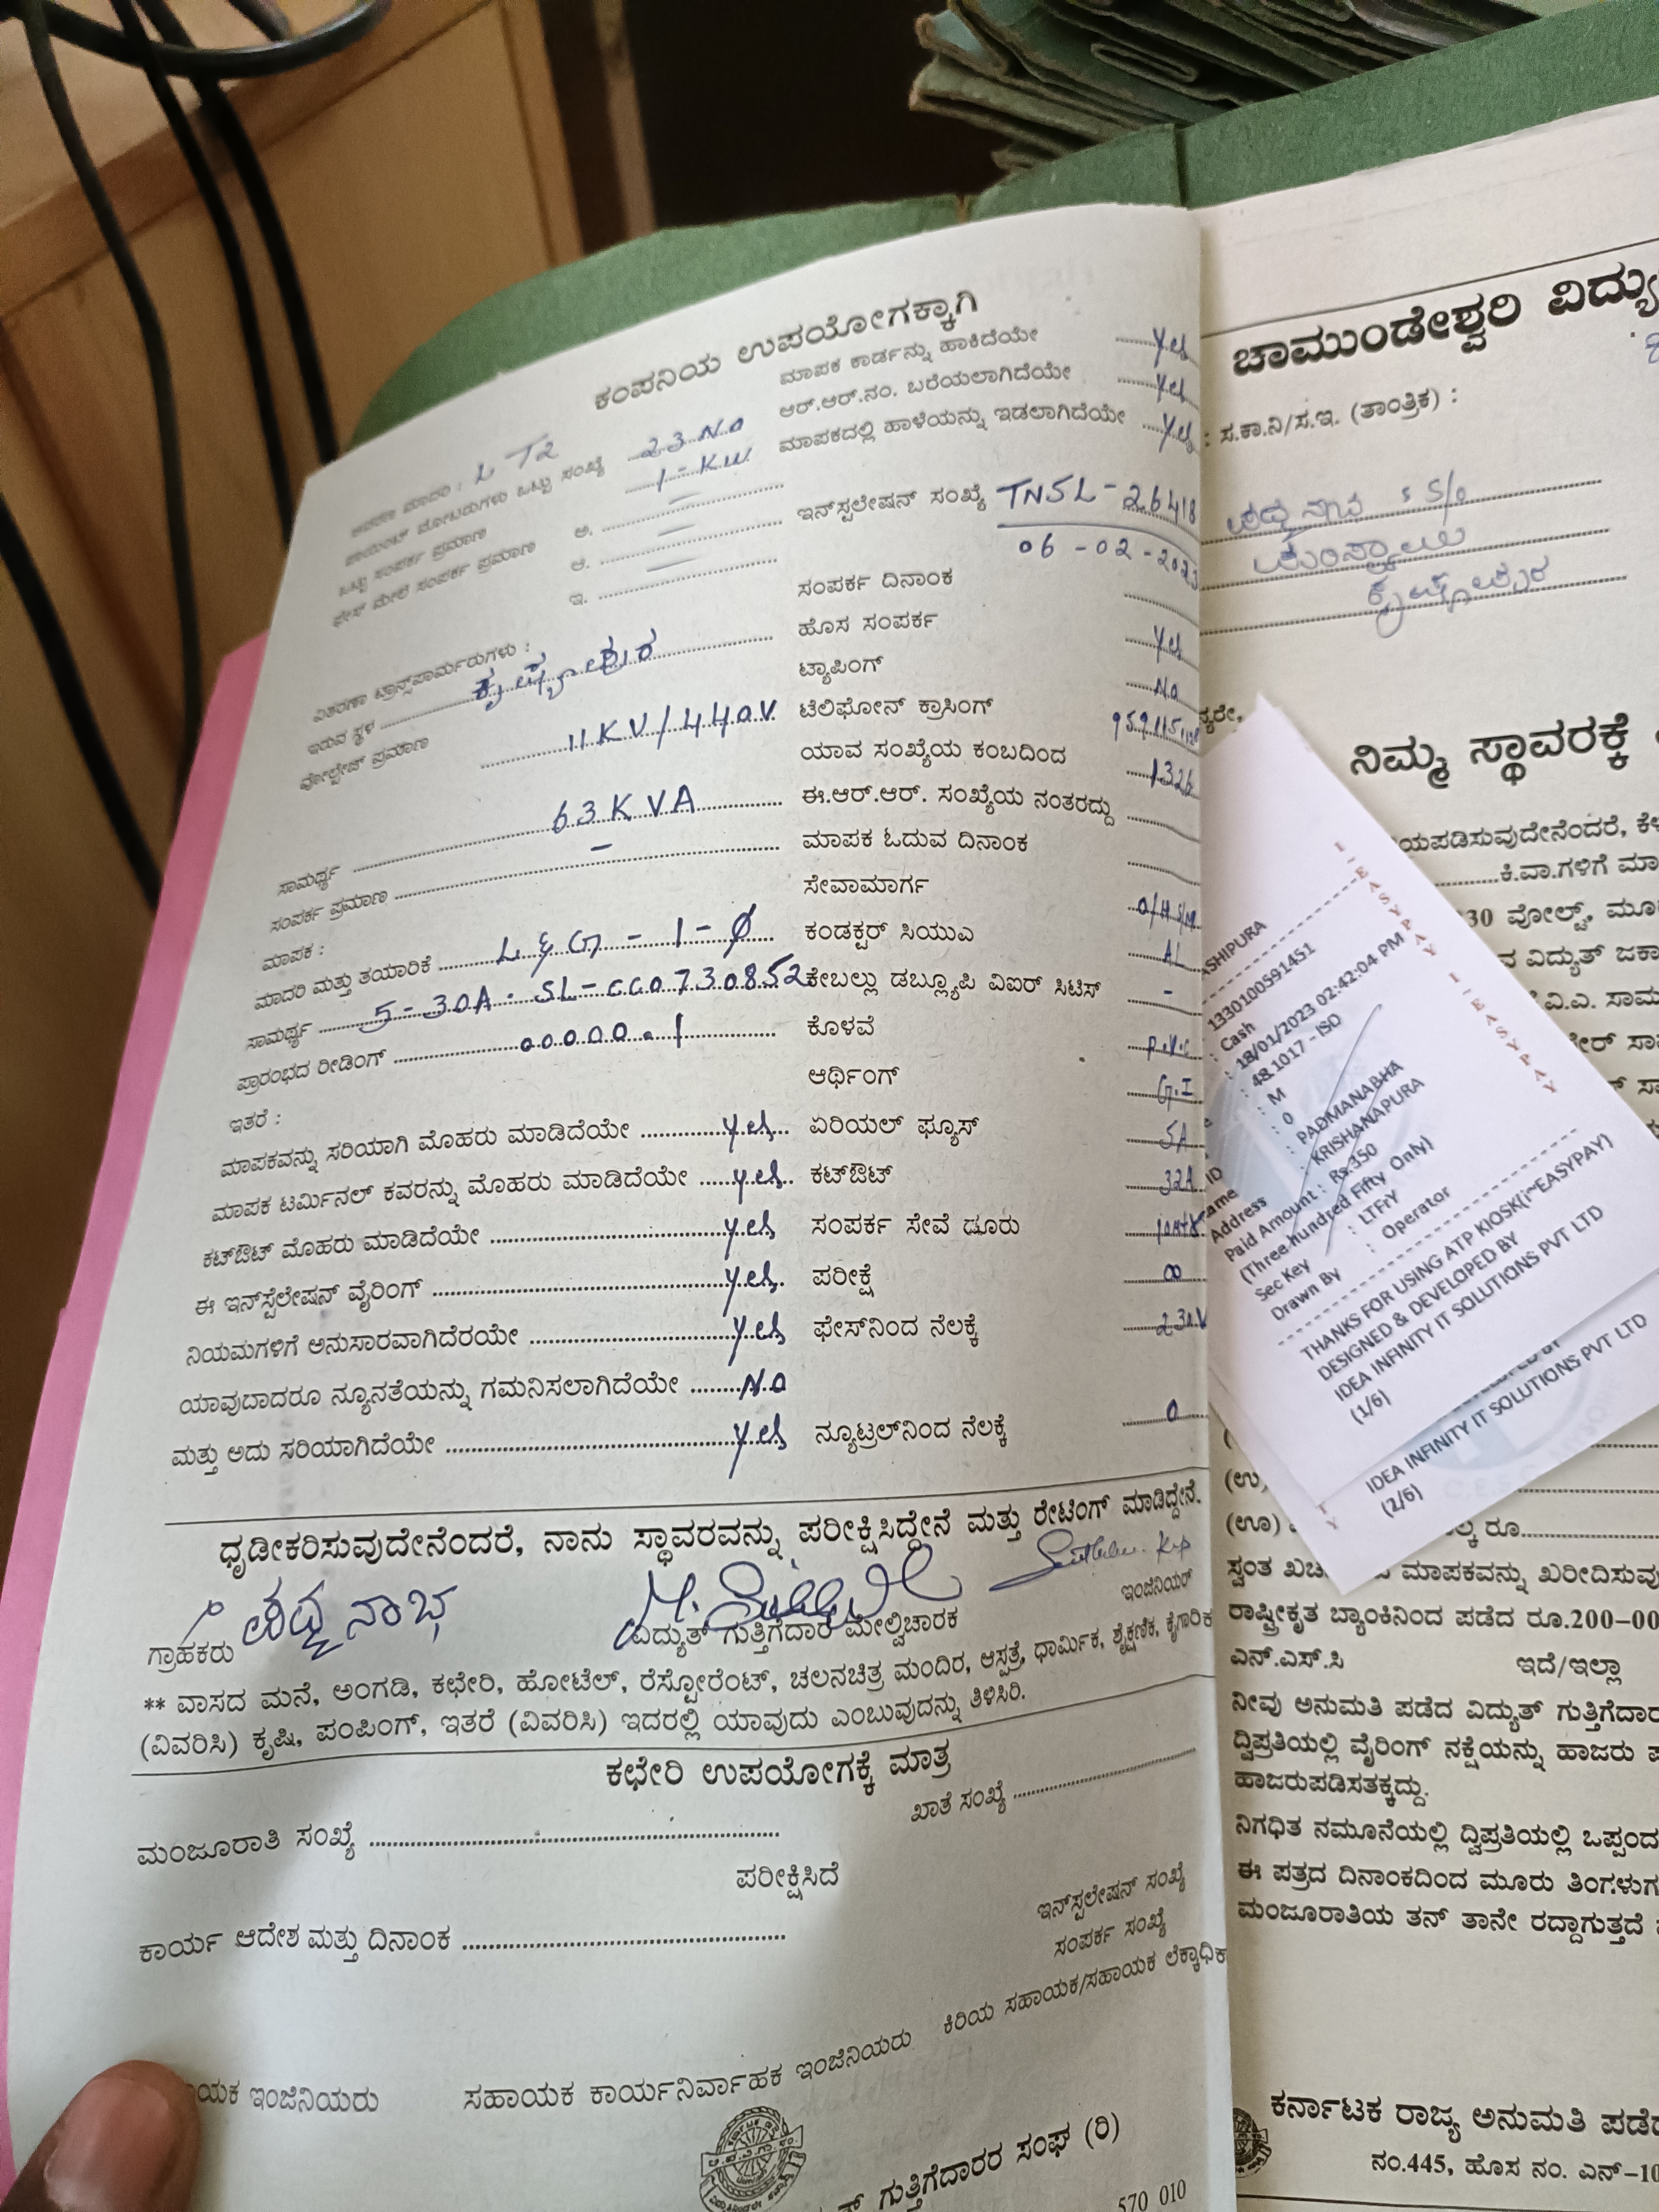 ಕಂಪನಿಯ ಉಪಯೋಗಕ್ಕಾಗಿ
ಮಾದರಿ : LT2
ಪಾಯಿಂಟ್ ಮೋಟರುಗಳು ಒಟ್ಟು ಸಂಖ್ಯೆ 23 No
ಒಟ್ಟು ಸಂಪರ್ಕ ಪ್ರಮಾಣ 1-KW
ಫೇಸ್ ಮೇಲೆ ಸಂಪರ್ಕ ಪ್ರಮಾಣ ಅ. —
ಆ. —
ಇ. —
ವಿತರಣಾ ಟ್ರಾನ್ಸ್‌ಫಾರ್ಮರುಗಳು :
ಇರುವ ಸ್ಥಳ ಕೃಷ್ಣಾಪುರ
ವೋಲ್ಟೇಜ್ ಪ್ರಮಾಣ 11KV/440V
ಸಾಮರ್ಥ್ಯ 63KVA
ಸಂಪರ್ಕ ಪ್ರಮಾಣ –
ಮಾಪಕ :
ಮಾದರಿ ಮತ್ತು ತಯಾರಿಕೆ L&G - 1-Ø
ಸಾಮರ್ಥ್ಯ 5-30A. SL-CC0730852
ಪ್ರಾರಂಭದ ರೀಡಿಂಗ್ 00000.1
ಇತರೆ :
ಮಾಪಕವನ್ನು ಸರಿಯಾಗಿ ಮೊಹರು ಮಾಡಿದೆಯೇ Yes
ಮಾಪಕ ಟರ್ಮಿನಲ್ ಕವರನ್ನು ಮೊಹರು ಮಾಡಿದೆಯೇ Yes
ಕಟ್‌ಔಟ್ ಮೊಹರು ಮಾಡಿದೆಯೇ Yes
ಈ ಇನ್‌ಸ್ಟೆಲೇಷನ್ ವೈರಿಂಗ್ Yes
ನಿಯಮಗಳಿಗೆ ಅನುಸಾರವಾಗಿದೆರಯೇ Yes
ಯಾವುದಾದರೂ ನ್ಯೂನತೆಯನ್ನು ಗಮನಿಸಲಾಗಿದೆಯೇ No
ಮತ್ತು ಅದು ಸರಿಯಾಗಿದೆಯೇ Yes
ಮಾಪಕ ಕಾರ್ಡನ್ನು ಹಾಕಿದೆಯೇ Yes
ಆರ್.ಆರ್.ನಂ. ಬರೆಯಲಾಗಿದೆಯೇ Yes
ಮಾಪಕದಲ್ಲಿ ಹಾಳೆಯನ್ನು ಇಡಲಾಗಿದೆಯೇ Yes
ಇನ್‌ಸ್ಟಲೇಷನ್ ಸಂಖ್ಯೆ TNSL-26418
06-02-2023
ಸಂಪರ್ಕ ದಿನಾಂಕ
ಹೊಸ ಸಂಪರ್ಕ Yes
ಟ್ಯಾಪಿಂಗ್ No
ಟೆಲಿಫೋನ್ ಕ್ರಾಸಿಂಗ್
ಯಾವ ಸಂಖ್ಯೆಯ ಕಂಬದಿಂದ 1326
ಈ.ಆರ್.ಆರ್. ಸಂಖ್ಯೆಯ ನಂತರದ್ದು
ಮಾಪಕ ಓದುವ ದಿನಾಂಕ
ಸೇವಾಮಾರ್ಗ
ಕಂಡಕ್ಟರ್ ಸಿಯುಎ AL
ಕೇಬಲ್ಲು ಡಬ್ಲ್ಯೂಪಿ ವಿಐರ್ ಸಿಟಿಸ್ -
ಕೊಳವೆ P.V.C
ಆರ್ಥಿಂಗ್ G.I
ಏರಿಯಲ್ ಫ್ಯೂಸ್ 5A
ಕಟ್‌ಔಟ್ 32A
ಸಂಪರ್ಕ ಸೇವೆ ದೂರು
ಪರೀಕ್ಷೆ ∞
ಫೇಸ್‌ನಿಂದ ನೆಲಕ್ಕೆ 230V
ನ್ಯೂಟ್ರಲ್‌ನಿಂದ ನೆಲಕ್ಕೆ 0
ಧೃಡೀಕರಿಸುವುದೇನೆಂದರೆ, ನಾನು ಸ್ಥಾವರವನ್ನು ಪರೀಕ್ಷಿಸಿದ್ದೇನೆ ಮತ್ತು ರೇಟಿಂಗ್ ಮಾಡಿದ್ದೇನೆ.
ಪದ್ಮನಾಭ
ಗ್ರಾಹಕರು ವಿದ್ಯುತ್ ಗುತ್ತಿಗೆದಾರ ಮೇಲ್ವಿಚಾರಕ ಇಂಜಿನಿಯರ್
** ವಾಸದ ಮನೆ, ಅಂಗಡಿ, ಕಛೇರಿ, ಹೋಟೆಲ್, ರೆಸ್ಟೋರೆಂಟ್, ಚಲನಚಿತ್ರ ಮಂದಿರ, ಆಸ್ಪತ್ರೆ, ಧಾರ್ಮಿಕ, ಶೈಕ್ಷಣಿಕ, ಕೈಗಾರಿಕ
(ವಿವರಿಸಿ) ಕೃಷಿ, ಪಂಪಿಂಗ್, ಇತರೆ (ವಿವರಿಸಿ) ಇದರಲ್ಲಿ ಯಾವುದು ಎಂಬುವುದನ್ನು ತಿಳಿಸಿರಿ.
ಕಛೇರಿ ಉಪಯೋಗಕ್ಕೆ ಮಾತ್ರ
ಮಂಜೂರಾತಿ ಸಂಖ್ಯೆ ಖಾತೆ ಸಂಖ್ಯೆ
ಪರೀಕ್ಷಿಸಿದೆ
ಕಾರ್ಯ ಆದೇಶ ಮತ್ತು ದಿನಾಂಕ
ಇನ್‌ಸ್ಟಲೇಷನ್ ಸಂಖ್ಯೆ
ಸಂಪರ್ಕ ಸಂಖ್ಯೆ
ಕಿರಿಯ ಸಹಾಯಕ/ಸಹಾಯಕ ಲೆಕ್ಕಾಧಿಕಾ
ಯಕ ಇಂಜಿನಿಯರು ಸಹಾಯಕ ಕಾರ್ಯನಿರ್ವಾಹಕ ಇಂಜಿನಿಯರು
ಗುತ್ತಿಗೆದಾರರ ಸಂಘ (ರಿ)
570 010
ಚಾಮುಂಡೇಶ್ವರಿ ವಿದ್ಯು
: ಸ.ಕಾ.ನಿ/ಸ.ಇ. (ತಾಂತ್ರಿಕ) :
S/o
ಕೃಷ್ಣಾಪುರ
ನ್ಯರೇ,
ನಿಮ್ಮ ಸ್ಥಾವರಕ್ಕೆ
ಯಪಡಿಸುವುದೇನೆಂದರೆ, ಕೆಳ
ಕಿ.ವಾ.ಗಳಿಗೆ ಮಾ
30 ವೋಲ್ಟ್, ಮೂ
ವ ವಿದ್ಯುತ್ ಜಕಾ
ವಿ.ಎ. ಸಾಮ
ASHIPURA
1330100591451
: Cash
: 18/01/2023 02:42:04 PM
: 48.1017 - ISO
: M
: 0
: PADMANABHA
: KRISHANAPURA
ID
ame
Address
Paid Amount : Rs.350
(Three hundred Fifty Only)
Sec Key : LTFrY
Drawn By : Operator
THANKS FOR USING ATP KIOSK(i~EASYPAY)
DESIGNED & DEVELOPED BY
IDEA INFINITY IT SOLUTIONS PVT LTD
(1/6)
I-EASYPAY I-EASYPAY
IDEA INFINITY IT SOLUTIONS PVT LTD
(2/6)
(ಉ)
(ಊ) ಲ್ಕ ರೂ
ಸ್ವಂತ ಖರ್ಚ ಮಾಪಕವನ್ನು ಖರೀದಿಸುವು
ರಾಷ್ಟ್ರೀಕೃತ ಬ್ಯಾಂಕಿನಿಂದ ಪಡೆದ ರೂ.200-00
ಎನ್.ಎಸ್.ಸಿ ಇದೆ/ಇಲ್ಲಾ
ನೀವು ಅನುಮತಿ ಪಡೆದ ವಿದ್ಯುತ್ ಗುತ್ತಿಗೆದಾರ
ದ್ವಿಪ್ರತಿಯಲ್ಲಿ ವೈರಿಂಗ್ ನಕ್ಷೆಯನ್ನು ಹಾಜರು ಪ
ಹಾಜರುಪಡಿಸತಕ್ಕದ್ದು.
ನಿಗಧಿತ ನಮೂನೆಯಲ್ಲಿ ದ್ವಿಪ್ರತಿಯಲ್ಲಿ ಒಪ್ಪಂದ
ಈ ಪತ್ರದ ದಿನಾಂಕದಿಂದ ಮೂರು ತಿಂಗಳುಗ
ಮಂಜೂರಾತಿಯ ತನ್ ತಾನೇ ರದ್ದಾಗುತ್ತದೆ
ಕರ್ನಾಟಕ ರಾಜ್ಯ ಅನುಮತಿ ಪಡೆದ
ನಂ.445, ಹೊಸ ನಂ. ಎನ್-10